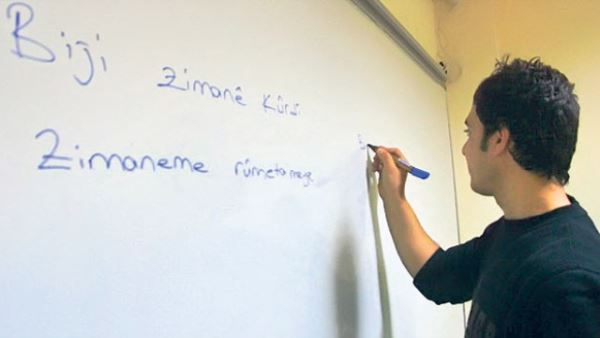 Biji Zimanê Kûrdi
Zimaneme rûmetamege